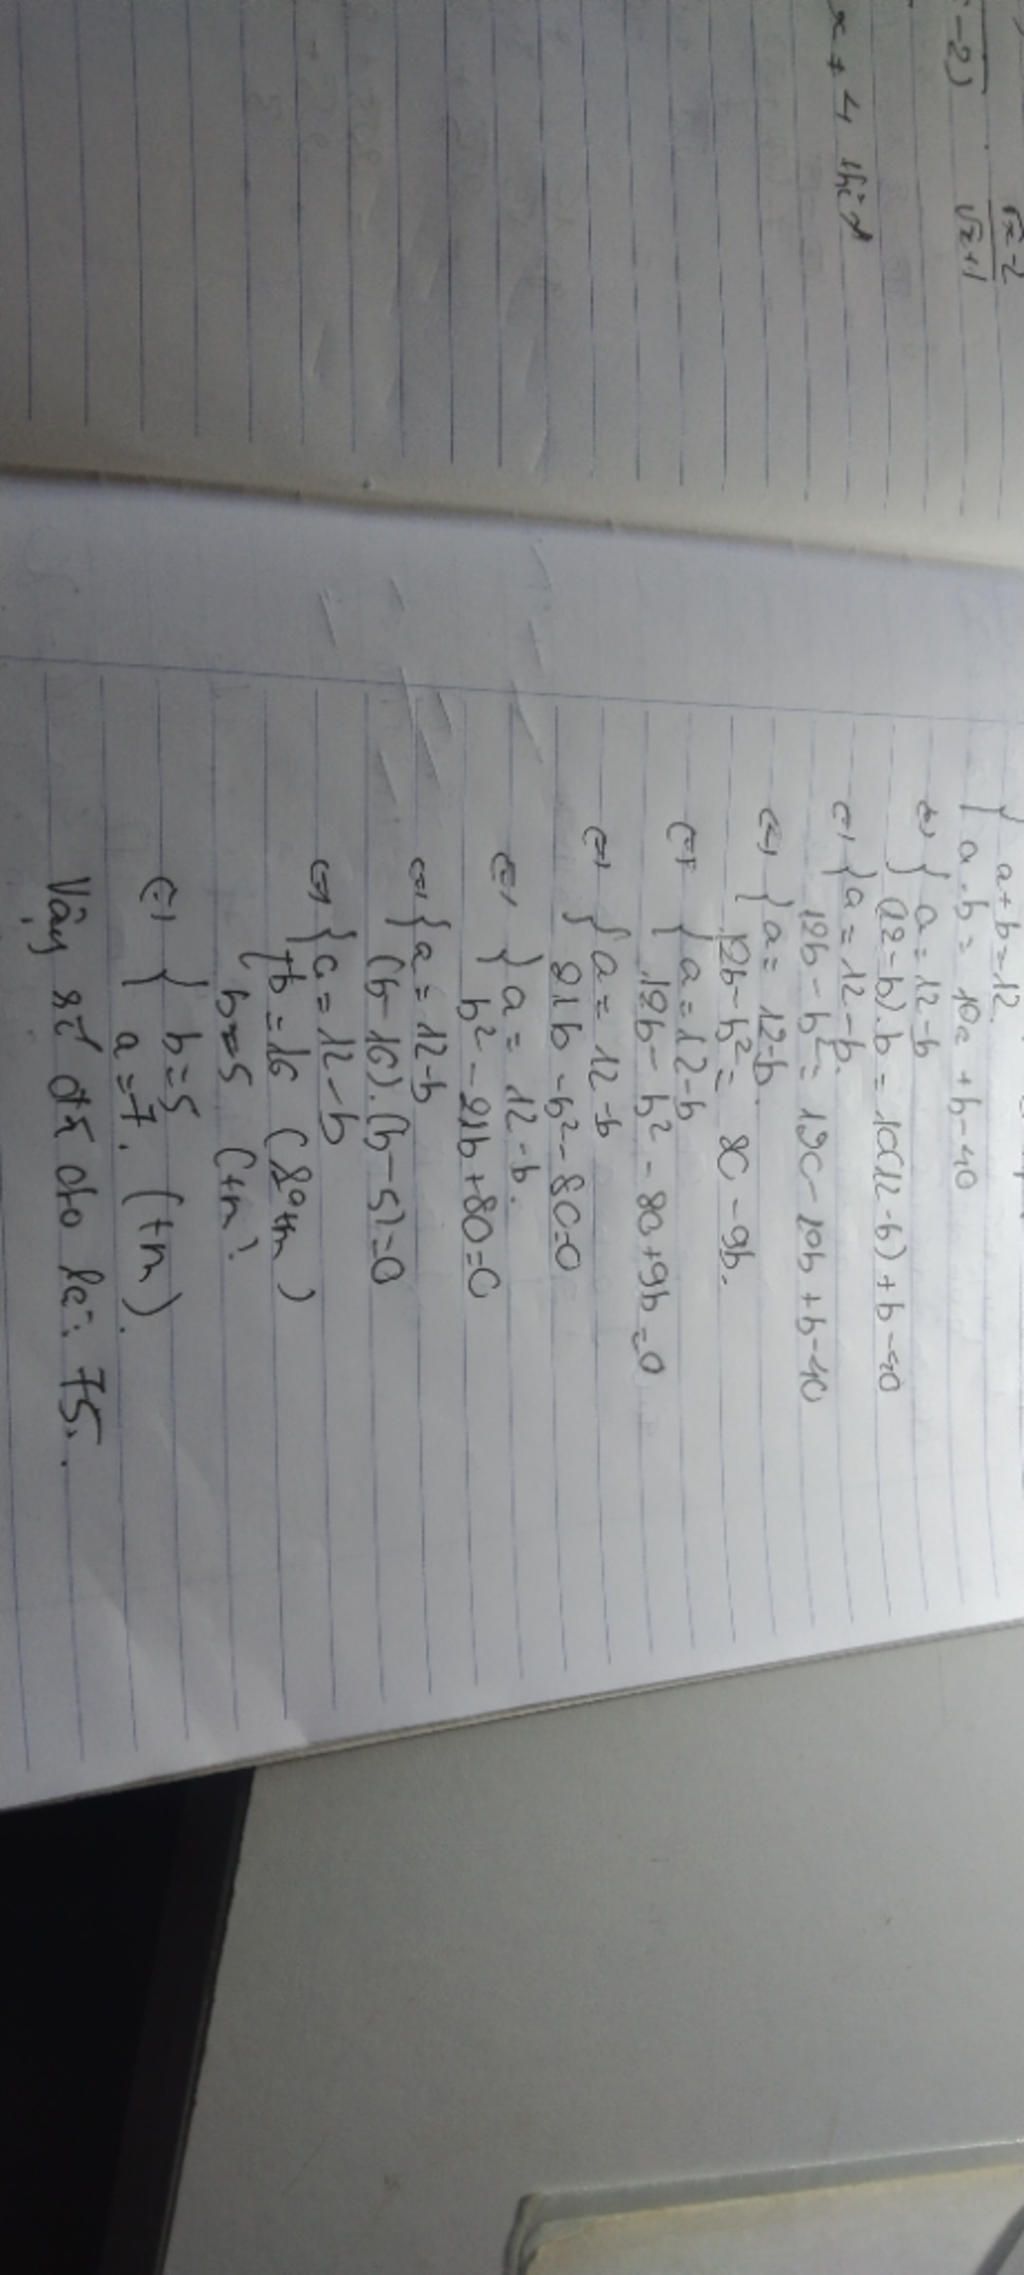 √x-2
√x+1
-2)
x ≠ 4 thì
{ a+b=12.
a.b = 10a + b-40
<=> { a = 12-b
(12-b).b = 10(12-b) + b-40
<=> { a = 12-b.
12b - b² = 120 - 10b + b-40
<=> { a = 12-b.
12b - b² = 80 - 9b.
<=> { a = 12-b
12b - b² - 80 + 9b = 0
<=> { a = 12-b
21b - b² - 80=0
<=> { a = 12-b.
b² - 21b + 80 = 0
<=> { a = 12-b
(b-16).(b-5)=0
<=> { a = 12-b
{ b = 16 (
b = 5 (tm)
<=> { b=5
a=7. (tm).
Vậy số đã cho là: 75.